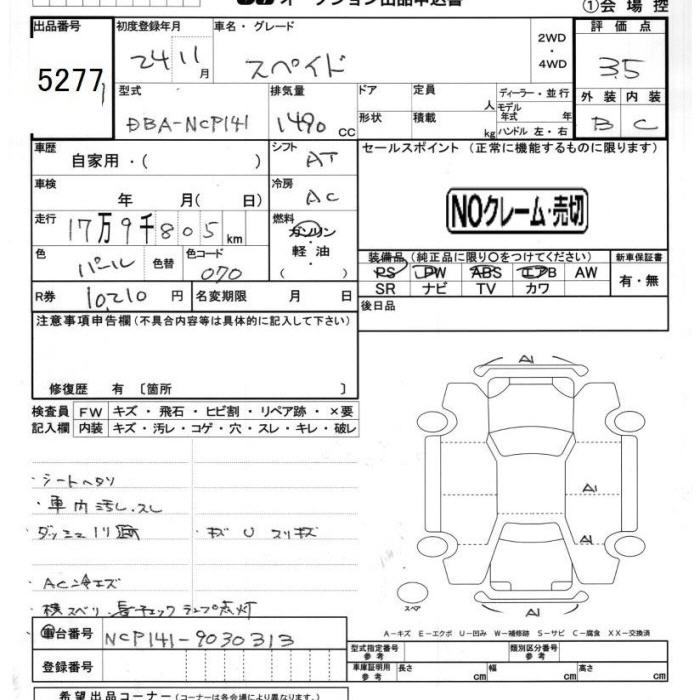 オークション出品申込書
①会場控
出品番号
5277
初度登録年月
24 11 月
車名・グレード
スペイド
2WD
・
4WD
評価点
3.5
外装 内装
B C
型式
DBA-NCP141
排気量
1490 cc
ドア
定員
人
形状
積載
kg
ディーラー・並行
モデル年式 年
ハンドル 左・右
車歴
自家用・( )
シフト
AT
セールスポイント (正常に機能するものに限ります)
NOクレーム・売切
車検
年 月( 日)
冷房
AC
走行
17万9千805 km
燃料
ガソリン
軽油
( )
色
パール
色替
色コード
070
装備品(純正品に限り○をつけてください)
PS PW ABS エアB AW
SR ナビ TV カワ
新車保証書
有・無
R券
10,210 円
名変期限 月 日
後日品
注意事項申告欄(不具合内容等は具体的に記入して下さい)
修復歴 有 〔箇所 〕
検査員
記入欄
FW キズ・飛石・ヒビ割・リペア跡・×要
内装 キズ・汚レ・コゲ・穴・スレ・キレ・破レ
・シートヘタリ
・車内汚レ.スレ
・キズ U スリキズ
・AC冷エズ
・横スベリ.チェックランプ点灯
A1
A1
A1
A1
スペア
A-キズ E-エクボ U-凹み W-補修跡 S-サビ C-腐食 XX-交換済
車台番号
NCP141-9030313
登録番号
型式指定番号
参考
類別区分番号
参考
車庫証明用
参考
長さ cm
幅 cm
高さ cm
希望出品コーナー(コーナーは各会場により異なります。)